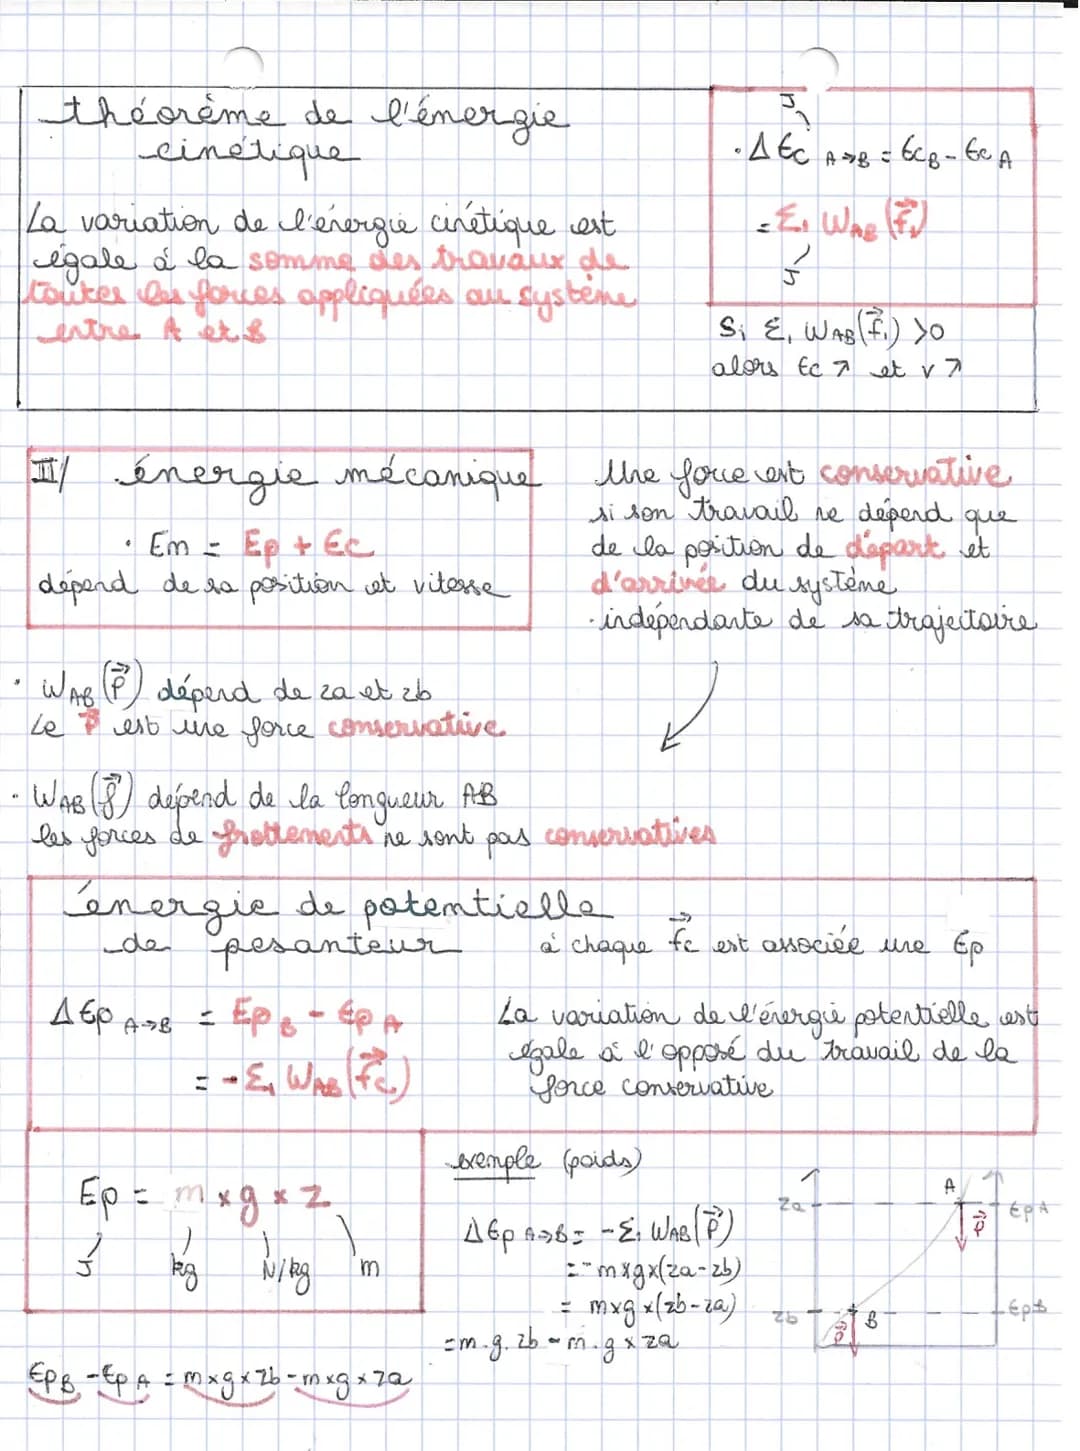 théorème de l'énergie
cinétique
La variation de l'énergie cinétique est
égale à la somme des travaux de
toutes les forces appliquées au système
entre A et B
J
· Δ Ec A→B = EcB - Ec A
= Σ, WAB (f⃗,)
J
Si Σ, WAB(f⃗,) >0
alors Ec ↗ et v ↗
II/ énergie mécanique
· Em = Ep + Ec
dépend de sa position et vitesse
Une force est conservative
si son travail ne dépend que
de la position de départ et
d'arrivée du système
· indépendante de sa trajectoire
· WAB (P⃗) dépend de za et zb
Le P⃗ est une force conservative
· WAB (f⃗) dépend de la longueur AB
les forces de frottements ne sont pas conservatives
énergie de potentielle
de pesanteur
à chaque f⃗c est associée une Ep
Δ Ep A→B = Ep B - Ep A
= - Σ, WAB (f⃗c)
La variation de l'énergie potentielle est
égale à l'opposé du travail de la
force conservative
Ep = m x g x z
J kg N/kg m
EpB - Ep A = m x g x zb - m x g x za
exemple (poids)
Δ Ep A→B = - Σ, WAB (P⃗)
= - m x g x (za - zb)
= m x g x (zb - za)
= m . g . zb - m . g x za
za A Ep A
P⃗
zb B Ep B
P⃗